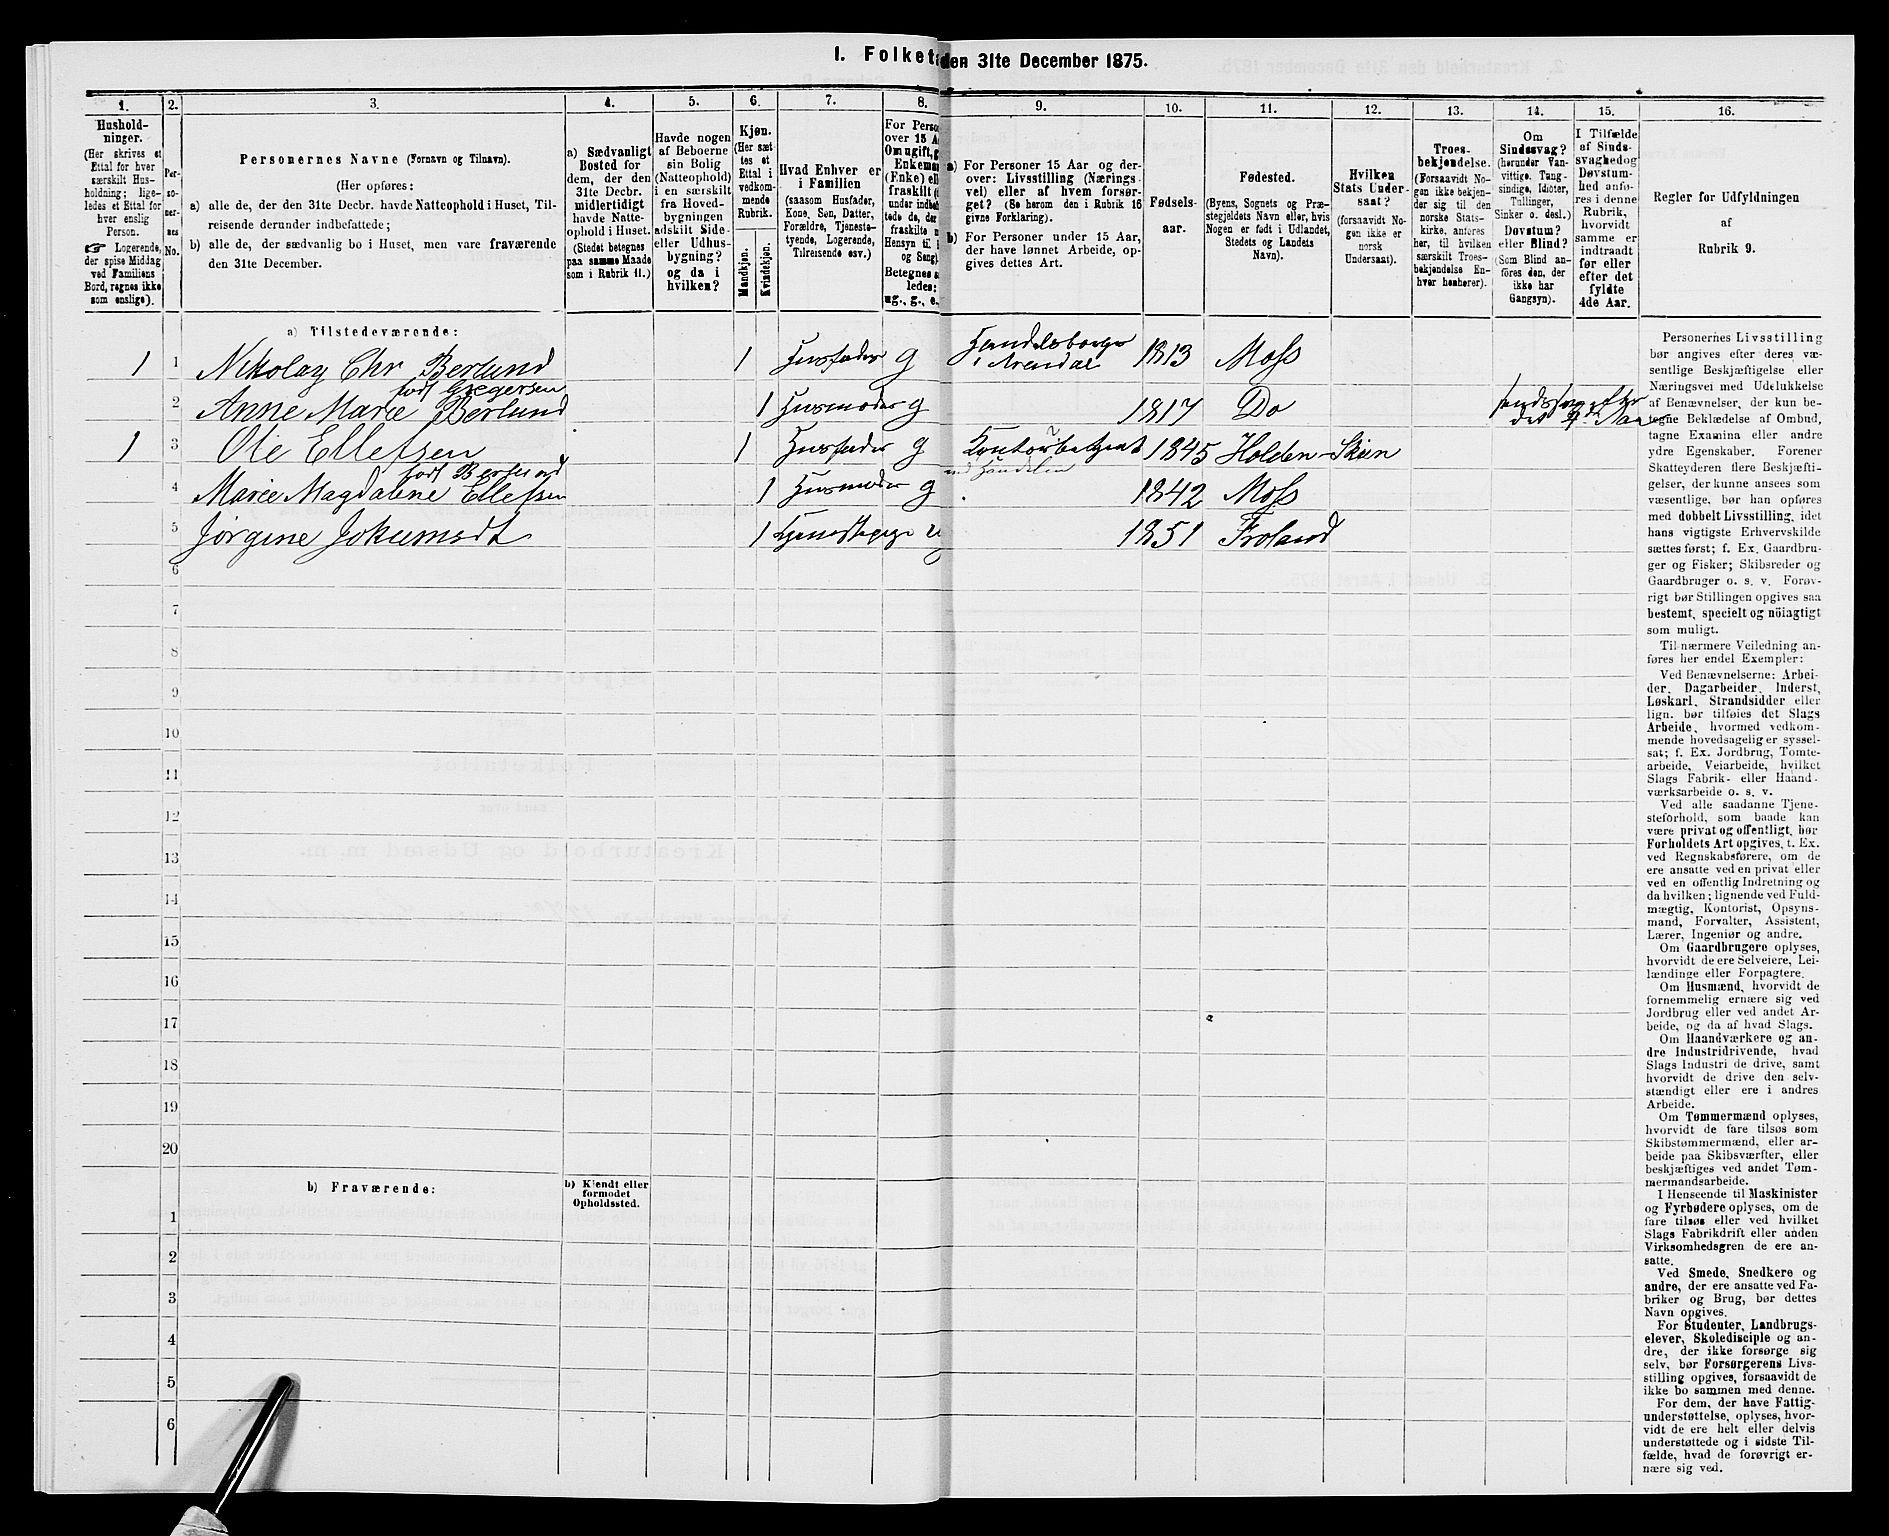 1. Folket den 31te December 1875.
1. 2. 3. 4. 5. 6. 7. 8. 9. 10. 11. 12. 13. 14. 15. 16.
Hushold-
ninger.
(Her skrives et
Ettal for hver
særskilt Hus-
holdning; lige-
ledes et Ettal for
hver enslig
Person.
☞ Logerende,
der spise Middag
ved Familiens
Bord, regnes ikke
som enslige).
Per-
so-
ner-
nes
No.
Personernes Navne (Fornavn og Tilnavn).
(Her opføres:
a) alle de, der den 31te Decbr. havde Natteophold i Huset, Til-
reisende derunder indbefattede;
b) alle de, der sædvanlig bo i Huset, men vare fraværende
den 31te December.
a) Sædvanligt
Bosted for
dem, der den
31te Decbr.
midlertidigt
havde Natte-
ophold i Huset.
(Stedet betegnes
paa samme Maade
som i Rubrik 11.)
Havde nogen
af Beboerne
sin Bolig
(Natteophold)
i en særskilt
fra Hoved-
bygningen
adskilt Side-
eller Udhus-
bygning?
og da i
hvilken?
Kjøn.
(Her sæt-
tes et
Ettal i
vedkom-
mende
Rubrik.
Mandkjøn.
Kvindekjøn.
Hvad Enhver er
i Familien
(saasom Husfader,
Kone, Søn, Datter,
Forældre, Tjeneste-
tyende, Logerende,
Tilreisende osv.)
For Perso
over 15 A
Om ugift, g
Enkeman
(Enke) ell
fraskilt (
under indbe
tede de, der
fraskilte
Hensyn til
og Seng).
Betegnes s
ledes:
ug., g., e.,
a) For Personer 15 Aar og der-
over: Livsstilling (Nærings-
vei) eller af hvem forsør-
get? (Se herom den i Rubrik 16
givne Forklaring).
b) For Personer under 15 Aar,
der have lønnet Arbeide, op-
gives dettes Art.
Fødsels-
aar.
Fødested.
(Byens, Sognets og Præ-
stegjeldets Navn eller, hvis
Nogen er født i Udlandet,
Stedets og Landets
Navn).
Hvilken
Stats Under-
saat?
(forsaavidt No-
gen ikke er
norsk
Undersaat).
Troes-
bekjendelse.
(Forsaavidt No-
gen ikke bekjen-
der sig til den
norske Stats-
kirke, anføres
her, til hvilken
særskilt Troes-
bekjendelse En-
hver henhører).
Om
Sindssvag?
(herunder Van-
vittige, Tung-
sindige, Idioter,
Tullinger,
Sinker o. desl.)
Døvstum?
eller Blind?
(Som Blind an-
føres den, der
ikke har
Gangsyn).
I Tilfælde
af Sinds-
svaghed og
Døvstum-
hed anfø-
res i denne
Rubrik,
hvorvidt
samme er
indtraadt
før eller
efter det
fyldte
4de Aar.
Regler for Udfyldningen
af
Rubrik 9.
a) Tilstedeværende:
1 1 Nikolay Chr Berlund 1 Husfader g Handelsborger i Arendal 1813 Moss
født Gregersen
2 Anne Marie Berlund 1 Husmoder g 1817 Do
1 3 Ole Ellefsen 1 Husfader g Kontorbetjent ved Handelen 1845 Holden - Skien
født Berlund
4 Marie Magdalene Ellefsen 1 Husmoder g 1842 Moss
5 Jørgine Jokumsdt 1 Tjenestepige 1851 Froland
6
7
8
9
10
11
12
13
14
15
16
17
18
19
20
b) Fraværende:
b) Kjendt eller
formodet
Opholdssted.
1
2
3
4
5
6
Personernes Livsstilling
bør angives efter deres væ-
sentlige Beskjæftigelse eller
Næringsvei med Udelukkelse
af Benævnelser, der kun be-
tegne Beklædelse af Ombud,
tagne Examina eller andre
ydre Egenskaber. Forener
Skatteyderen flere Beskjæfti-
gelser, der kunne ansees som
væsentlige, bør han opføres
med dobbelt Livsstilling, idet
hans vigtigste Erhvervskilde
sættes først; f. Ex. Gaardbru-
ger og Fisker; Skibsreder og
Gaardbruger o. s. v. Forøv-
rigt bør Stillingen opgives saa
bestemt, specielt og nöiagtigt
som muligt.
Til nærmere Veiledning an-
føres her endel Exempler:
Ved Benævnelserne: Arbei-
der, Dagarbeider, Inderst,
Løskarl, Strandsidder eller
lign. bør tilføies det Slags
Arbeide, hvormed vedkom-
mende hovedsagelig er syssel-
sat; f. Ex. Jordbrug, Tomte-
arbeide, Veiarbeide, hvilket
Slags Fabrik- eller Haand-
værksarbeide o. s. v.
Ved alle saadanne Tjene-
steforhold, som baade kan
være privat og offentligt, bør
Forholdets Art opgives, t. Ex.
ved Regnskabsførere, om de
ere ansatte ved en privat eller
ved en offentlig Indretning og
da hvilken; lignende ved Fuld-
mægtig, Kontorist, Opsyns-
mand, Forvalter, Assistent,
Lærer, Ingeniør og andre.
Om Gaardbrugere oplyses,
hvorvidt de ere Selveiere, Lei-
lændinge eller Forpagtere.
Om Husmænd, hvorvidt de
fornemmelig ernære sig ved
Jordbrug eller ved andet Ar-
beide, og da af hvad Slags.
Om Haandværkere og an-
dre Industridrivende, hvad
Slags Industri de drive, samt
hvorvidt de drive den selv-
stændigt eller ere i andres
Arbeide.
Om Tømmermænd oplyses,
hvorvidt de fare tilsøs som
Skibstømmermænd, eller ar-
beide paa Skibsværfter, eller
beskjæftiges ved andet Tøm-
mermandsarbeide.
I Henseende til Maskinister
og Fyrbødere oplyses, om de
fare tilsøs eller ved hvilket
Slags Fabrikdrift eller anden
Virksomhedsgren de ere an-
satte.
Ved Smede, Snedkere og
andre, der ere ansatte ved Fa-
briker og Brug, bør dettes
Navn opgives.
For Studenter, Landbrugs-
elever, Skoledisciple og an-
dre, der ikke forsørge sig
selv, bør Forsørgerens Livs-
stilling opgives, forsaavidt de
ikke bo sammen med denne.
For dem, der have Fattig-
understøttelse, oplyses, hvor-
vidt de ere helt eller delvis
understøttede og i sidste Til-
fælde, hvad de forøvrigt er-
nære sig ved.